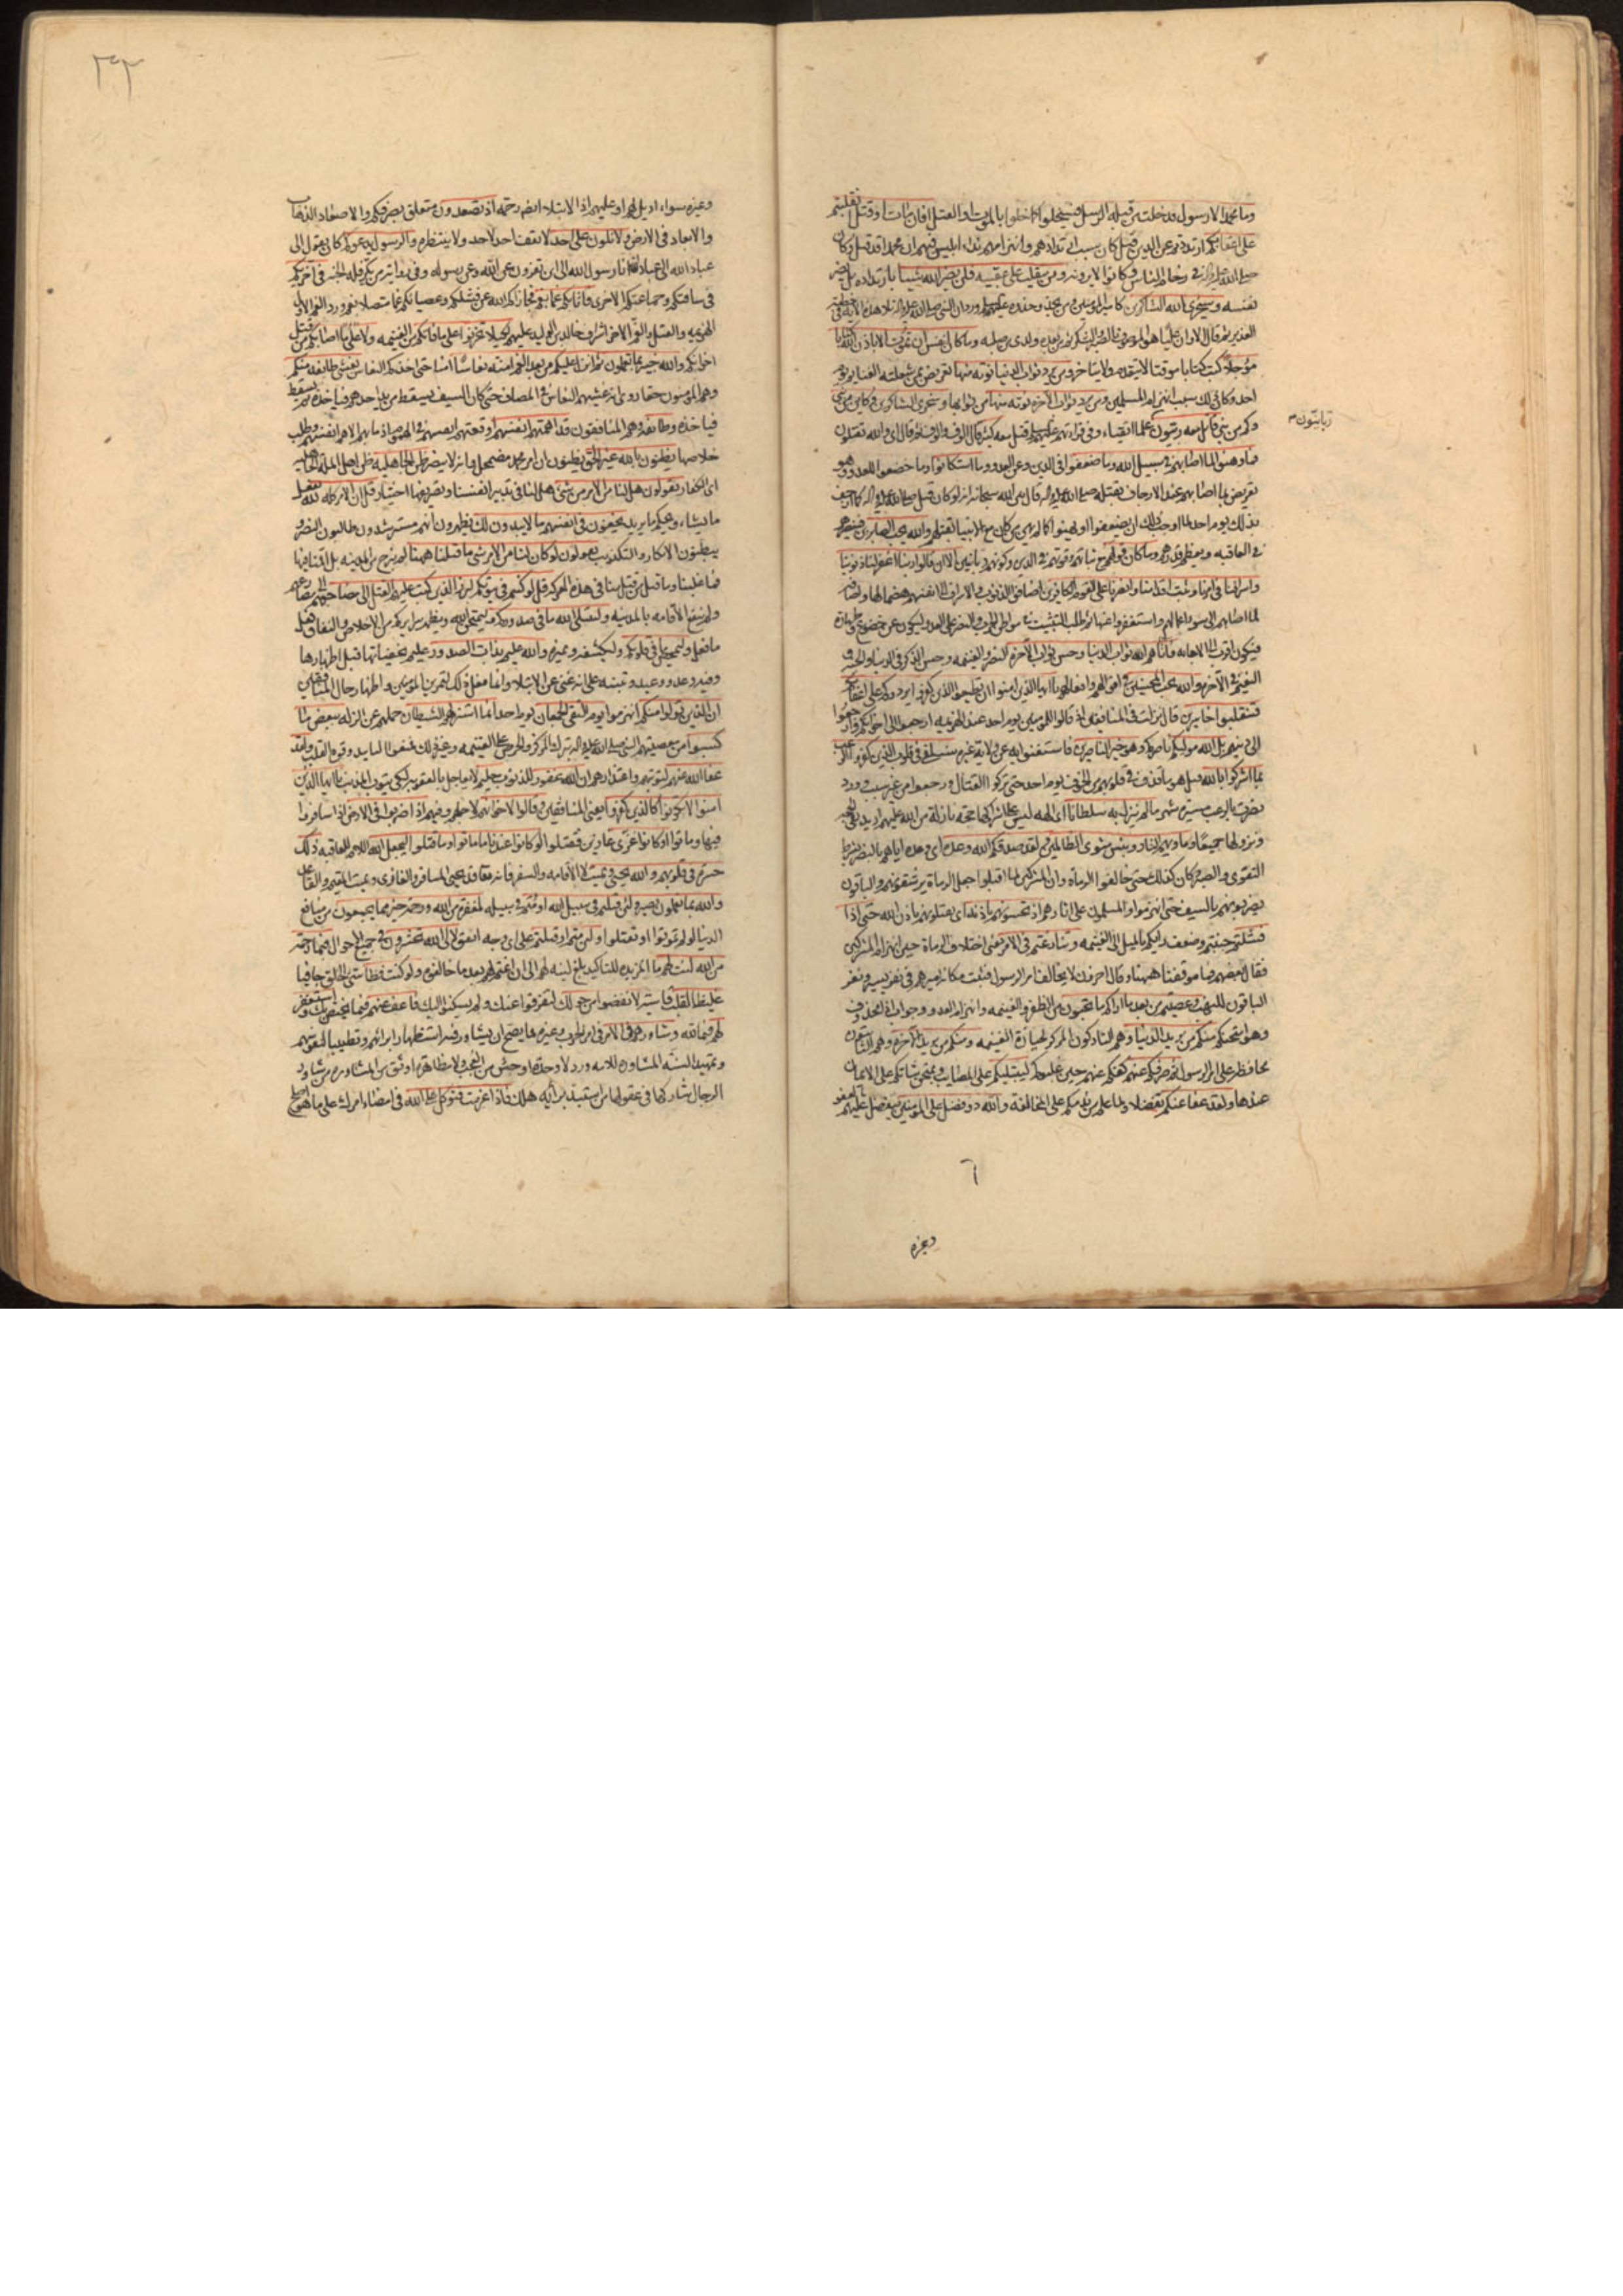 وما محمد الا رسول قد خلت من قبله الرسل فسيخلوا كما خلوا بالموت او القتل افان مات او قتل انقلبتم
على اعقابكم ارتددتم عن الدين قيل كان سبب ارتدادهم وانهزامهم نداء ابليس فيهم ان محمدا قد قتل وكان
ومن ينقلب على عقبيه فلن يضر الله شيئا بارتداده بل يضر
نفسه وسيجزي الله الشاكرين كامير المؤمنين ومن يحذو حذوه
وما كان لنفس ان تموت الا باذن الله كتابا
مؤجلا كتب كتابا موقتا لا يتقدم ولا يتاخر ومن يرد ثواب الدنيا نؤته منها تعريض بمن شغلته الغنايم يوم
احد وكان ذلك سبب انهزام المسلمين ومن يرد ثواب الاخرة نؤته منها من ثوابها وسنجزي الشاكرين وكاين من نبي
وكم من نبي قاتل معه ربيون علماء اتقياء وفي قراءتهم قتل معه كثير قال الوف والوف ثم قال اي والله يقتلون
ربانيون م
فما وهنوا لما اصابهم في سبيل الله وما ضعفوا في الدين وعن العدو وما استكانوا وما خضعوا للعدو وهو
تعريض بما اصابهم عند الارجاف بقتله
والله يحب الصابرين فينصرهم
في العاقبة ويعظم قدرهم وما كان قولهم مع ثباتهم وقوتهم في الدين وكونهم ربانيين الا ان قالوا ربنا اغفر لنا ذنوبنا
واسرافنا في امرنا وثبت اقدامنا وانصرنا على القوم الكافرين اضافوا الذنوب والاسراف الى انفسهم هضما لها
فيكون اقرب الى الاجابة فاتاهم الله ثواب الدنيا وحسن ثواب الاخرة النصر والغنيمة وحسن الذكر في الدنيا والجنة و
النعيم في الاخرة والله يحب المحسنين في اقوالهم وافعالهم يا ايها الذين امنوا ان تطيعوا الذين كفروا يردوكم على اعقابكم
فتنقلبوا خاسرين قال نزلت في المنافقين اذ قالوا للمؤمنين يوم احد عند الهزيمة ارجعوا الى اخوانكم وارجعوا
الى دينهم بل الله موليكم ناصركم وهو خير الناصرين فاستغنوا به عن ولاية غيره سنلقي في قلوب الذين كفروا الرعب
بما اشركوا بالله قيل هو ما قذف في قلوبهم من الخوف يوم احد حتى تركوا القتال ورجعوا من غير سبب وورد
نصرت بالرعب مسيرة شهر ما لم ينزل به سلطانا اي الهة ليس على اشراكها حجة نازلة من الله عليهم
وماويهم النار وبئس مثوى الظالمين ولقد صدقكم الله وعده اي وعده اياهم بالنصر بشرط
التقوى والصبر وكان كذلك حتى خالفوا الرماة وان المشركين لما اقبلوا جعل الرماة يرشقونهم والباقون
يضربونهم بالسيف حتى انهزموا والمسلمون على اثارهم اذ تحسونهم باذنه اي تقتلونهم باذن الله حتى اذا
فشلتم جبنتم وضعف رايكم بالميل الى الغنيمة وتنازعتم في الامر يعني اختلاف الرماة حين انهزام المشركين
فقال بعضهم فما موقفنا ههنا وقال اخرون لا نخالف امر الرسول فثبت مكانه اميرهم في نفر يسير ونفر
الباقون للنهب وعصيتم من بعد ما اراكم ما تحبون من الظفر والغنيمة وانهزام العدو وجواب اذا محذوف
وهو امتحنكم منكم من يريد الدنيا وهم التاركون المركز لحيازة الغنيمة ومنكم من يريد الاخرة وهم الثابتون
محافظة على امر الرسول ثم صرفكم عنهم كفكم عنهم حين غلبوكم ليبتليكم على المصايب ويمتحن ثباتكم على الايمان
عندها ولقد عفا عنكم تفضلا ولما علم من ندمكم على المخالفة والله ذو فضل على المؤمنين يتفضل عليهم بالعفو
٦
وغيره
٣٣
وغيره سواء اديل لهم او عليهم اذ الابتلاء ايضا رحمة اذ تصعدون متعلق بصرفكم والاصعاد الذهاب
والابعاد في الارض ولا تلون على احد لا يقف احد لاحد ولا ينتظره والرسول يدعوكم كان يقول الي
عباد الله الي عباد الله انا رسول الله الى اين تفرون عن الله وعن رسوله وفي رواية من يكر فله الجنة في اخريكم
في ساقتكم وجماعتكم الاخرى فاثابكم غما بغم فجازاكم الله عن فشلكم وعصيانكم غما متصلا بغم وورد الغم الاول
الهزيمة والقتل والغم الاخر اشراف خالد بن الوليد عليهم لكيلا تحزنوا على ما فاتكم من الغنيمة ولا على ما اصابكم من قتل
اخوانكم والله خبير بما تعملون ثم انزل عليكم من بعد الغم امنة نعاسا امنا حتى اخذكم النعاس يغشى طايفة منكم
وهم المؤمنون حقا روي انه غشيهم النعاس في المصاف حتى كان السيف يسقط من يد احدهم فياخذه ثم يسقط
فياخذه وطايفة وهم المنافقون قد اهمتهم انفسهم اوقعتهم انفسهم في الهموم اذ ما بهم الا هم انفسهم وطلب
خلاصها يظنون بالله غير الحق يظنون ان امر محمد مضمحل وانه لا ينصر ظن الجاهلية ظن اهل الملة الجاهلية
اي الكفار يقولون هل لنا من الامر من شيء هل لنا في تدبير انفسنا وتصريفها اختيار قل ان الامر كله لله يفعل
ما يشاء ويحكم ما يريد يخفون في انفسهم ما لا يبدون لك يظهرون انهم مسترشدون طالبون النصر و
يبطنون الانكار والتكذيب يقولون لو كان لنا من الامر شيء ما قتلنا ههنا لم نبرح من المدينة بل اقمنا فيها
فما غلبنا وما قتل من قتل منا في هذه المعركة قل لو كنتم في بيوتكم لبرز الذين كتب عليهم القتل الى مضاجعهم مصارعهم
ولم ينفع الاقامة بالمدينة وليبتلي الله ما في صدوركم ليمتحن الله ويظهر سرايركم من الاخلاص والنفاق
وليمحص ما في قلوبكم وليكشفه ويميزه والله عليم بذات الصدور عليم بخفياتها قبل اظهارها
وفيه وعد ووعيد وتنبيه على انه غني عن الابتلاء وانما فعل ذلك لتمرين المؤمنين واظهار حال المنافقين
ان الذين تولوا منكم انهزموا يوم التقى الجمعان يوم احد انما استزلهم الشيطان حملهم عن الزلة ببعض ما
كسبوا من معصيتهم النبي بترك المركز والحرص على الغنيمة وغير ذلك فمنعوا التاييد وقوة القلب ولقد
عفا الله عنهم لتوبتهم واعتذارهم ان الله غفور للذنوب حليم لا يعاجل بالعقوبة لكي يتوب المذنب يا ايها الذين
امنوا لا تكونوا كالذين كفروا يعني المنافقين وقالوا لاخوانهم لاجلهم وفيهم اذا ضربوا في الارض اذا سافروا
فيها وماتوا او كانوا غزى غازين فقتلوا لو كانوا عندنا ما ماتوا وما قتلوا ليجعل الله اللام للعاقبة ذلك
حسرة في قلوبهم والله يحيي ويميت لا الاقامة والسفر فانه تعالى قد يحيي المسافر والغازي ويميت المقيم والقاعد
والله بما تعملون بصير ولئن قتلتم في سبيل الله او متم في سبيله لمغفرة من الله ورحمة خير مما يجمعون من منافع
الدنيا لو لم تموتوا او تقتلوا ولئن متم او قتلتم على اي وجه اتفق لالى الله تحشرون في جميع الاحوال فبما رحمة
من الله لنت لهم ما مزيدة للتاكيد بلغ لينه لهم الى ان اغتم لهم بعد ما خالفوه ولو كنت فظا سيئ الخلق جافيا
غليظ القلب قاسيه لانفضوا من حولك لتفرقوا عنك ولم يسكنوا اليك فاعف عنهم فيما يختص بك واستغفر
لهم فيما لله وشاورهم في الامر في امر الحرب وغيره مما يصح ان يشاور فيه استظهارا برايهم وتطييبا لنفوسهم
وتمهيدا لسنة المشاورة للامة وورد لا وحدة اوحش من العجب ولا مظاهرة اوثق من المشاورة من شاور
الرجال شاركها في عقولها من استبد برايه هلك فاذا عزمت فتوكل على الله في امضاء امرك على ما هو اصلح